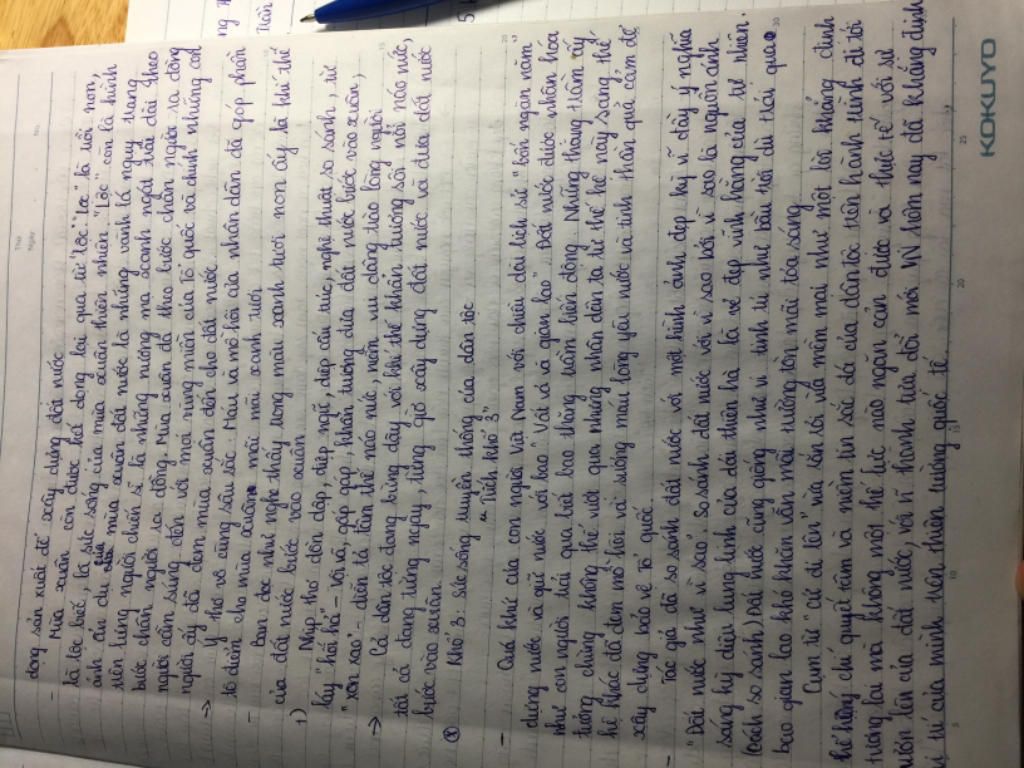 động sản xuất để xây dựng đất nước
- Mùa xuân còn được hđ đọng lại qua từ "lộc". "lộc" là nõn non,
là lộc biếc, là sức sống của mùa xuân thiên nhiên. "Lộc" còn là hình
ảnh ẩn dụ của mùa xuân đất nước là những vành lá ngụy trang
trên lưng người chiến sĩ là những nương mạ xanh ngát trải dài theo
bước chân người ra đồng. Mùa xuân đã theo bước chân người ra đồng
người cầm súng đến với mọi vùng miền của Tổ quốc và chính những con
người ấy đã đem mùa xuân đến cho đất nước
→ Ý thơ vô cùng sâu sắc. Máu và mồ hôi của nhân dân đã góp phần
tô điểm cho mùa xuân mãi mãi xanh tươi
- Bạn đọc như nghe thấy trong màu xanh tươi non ấy là khí thế
của đất nước bước vào xuân
1) Nhịp thơ dồn dập, điệp ngữ, điệp cấu trúc, nghệ thuật so sánh, từ
láy "hối hả" - vội vã, gấp gáp, khẩn trương đưa đất nước bước vào xuân,
"xôn xao" - diễn tả tâm thế náo nức, niềm vui dâng trào lòng người
→ Cả dân tộc đang bừng dậy với khí thế khẩn trương sôi nổi náo nức,
tất cả đang từng ngày, từng giờ xây dựng đất nước và đưa đất nước
bước vào xuân.
(*) Khổ 3: Sức sống truyền thống của dân tộc
"Trích khổ 3"
- Quá khứ của con người Việt Nam với chiều dài lịch sử "bốn ngàn năm"
dựng nước và giữ nước với bao "Vất vả và gian lao". Đất nước được nhân hóa
như con người trải qua biết bao thăng trầm biến động. Những tháng trầm ấy
tưởng chừng không thể vượt qua nhưng nhân dân ta từ thế hệ này sang thế
hệ khác đã đem mồ hôi và xương máu lòng yêu nước và tinh thần quả cảm để
xây dựng bảo vệ Tổ quốc.
- Tác giả đã so sánh đất nước với một hình ảnh đẹp kỳ vĩ đầy ý nghĩa
"Đất nước như vì sao". So sánh đất nước với vì sao bởi vì sao là nguồn ánh
sáng kỳ diệu lung linh của dải thiên hà là vẻ đẹp vĩnh hằng của tự nhiên.
(cách so sánh) Đất nước cũng giống như vì tinh tú như bầu trời dù trải qua
bao gian lao khó khăn vẫn mãi trường tồn mãi tỏa sáng
Cụm từ "cứ đi lên" vừa rắn rỏi vừa mềm mại như một lời khẳng định
thể hiện ý chí quyết tâm và niềm tin sắc đá của dân tộc trên hành trình đi tới
tương lai mà không một thế lực nào ngăn cản được và thực tế với sự
vươn lên của đất nước, với thành tựu đổi mới VN hôm nay đã khẳng định
vị trí của mình trên thương trường quốc tế
KOKUYO